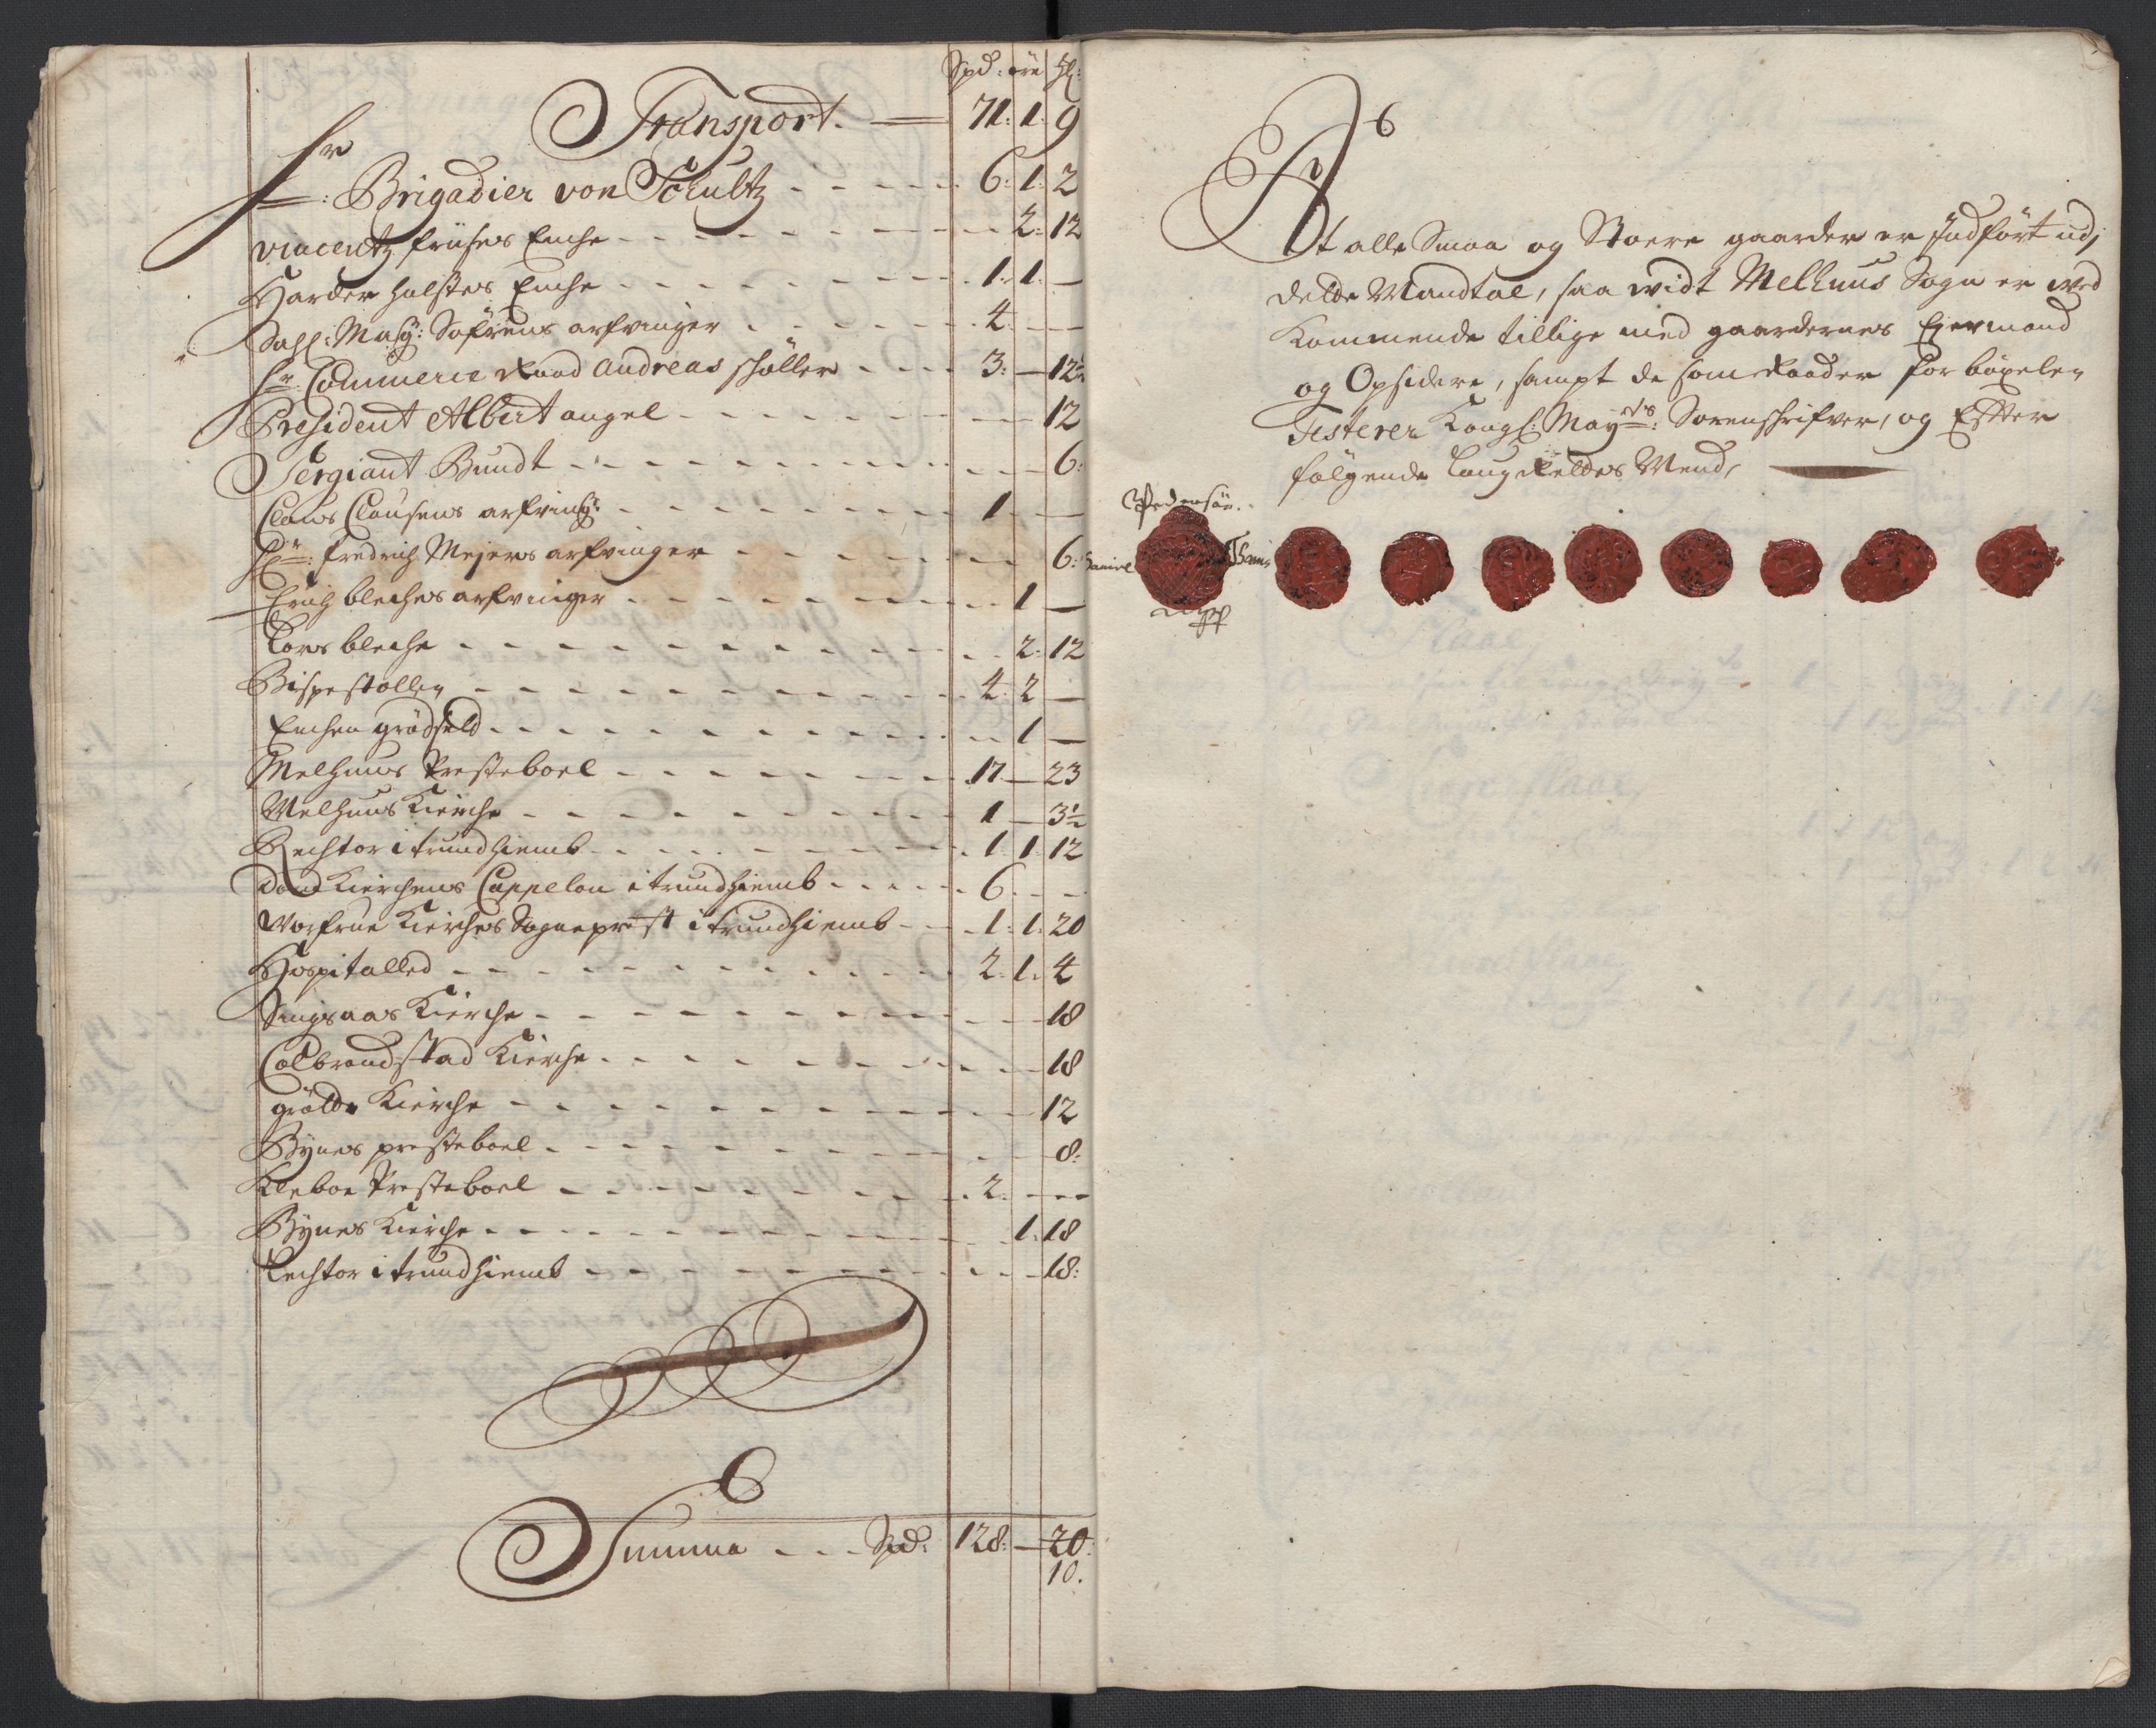 Spd: öre ℔:
Transport. — 71: 1: 9
Hr: Brigadier von Schultz - - - 6: 1: 2
Vincentz Friises Enche - - - 2: 12
Harder Holstes Enche - - - 1: 1: —
Sahl: Mag: Sofrens arfvinger - - - 4: — —
Hr: Commerce Raad Andreas Schöller - - - 3: — 12½
President Albert angel - - - 12
Sergiant Bundt - - - 6:
Claus Clausens arfving: - - - 1 — —
Fredrich Mejers arfvinger - - - 6:
Erich bleches arfvinger - - - 1 —
Lars bleche - - - 2: 12
Bispestollen - - - 4: 2 —
Enchen grödseld - - - 1 —
Melhuus Presteboel - - - 17 — 23
Melhuus Kierche - - - 1 — 3½
Rechtor i trundhiemb - - - 1: 1: 12
Dom Kierchens Cappelan i trundhiemb - - - 6: - -
Vorfrue Kierches Sogneprest i trundhiemb - - - 1: 1: 20
Hospitalled - - - 2: 1: 4
Singsaas Kierche - - - 18
Colbrandstad Kierche - - - 18
grölde Kierche - - - 12
Bynes presteboel - - - 8:
Kleboe Presteboel - - - 2: - -
Bynes Kierche - - - 1: 18
Rechtor i trundhiemb - - - 18:
Summa - - - Spd: 128: — 20:
10.
At alle Smaa og Stoere gaarder er Indfört udj
dette Mandtal, saa vidt Melhuus Sogn er ved
Kommende tillige med gaardernes Eiermand
og Opsidere, sampt de som Raader for böxelen
Testerer Kongl: Mayts: Sorenskrifver, og Efter
fölgende Laugrettes Mend,
Pedersön.
Samuel Thams